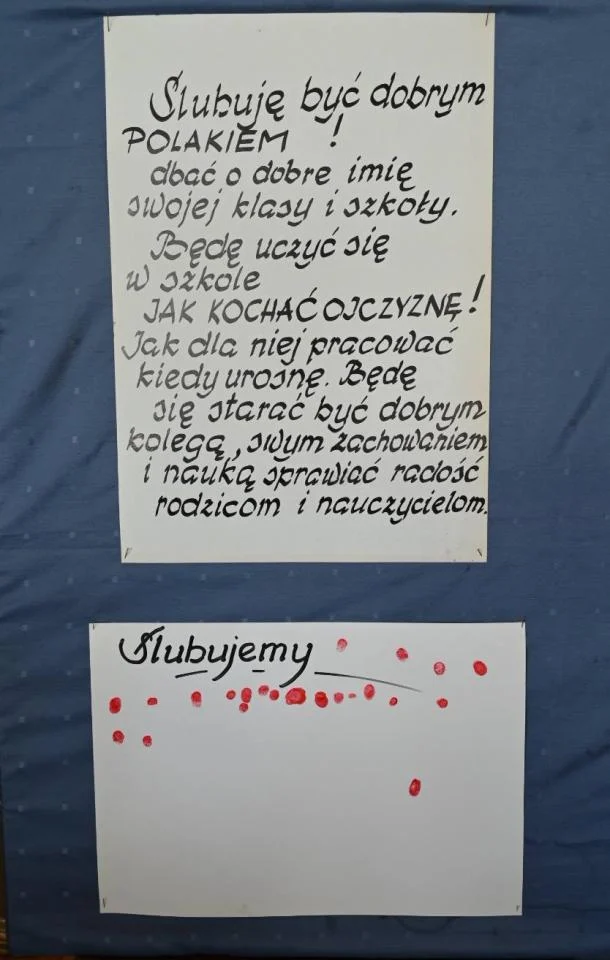 Ślubuję być dobrym
POLAKIEM !
dbać o dobre imię
swojej klasy i szkoły.
Będę uczyć się
w szkole
JAK KOCHAĆ OJCZYZNĘ!
Jak dla niej pracować
kiedy urosnę. Będę
się starać być dobrym
kolegą, swym zachowaniem
i nauką sprawiać radość
rodzicom i nauczycielom.
Ślubujemy